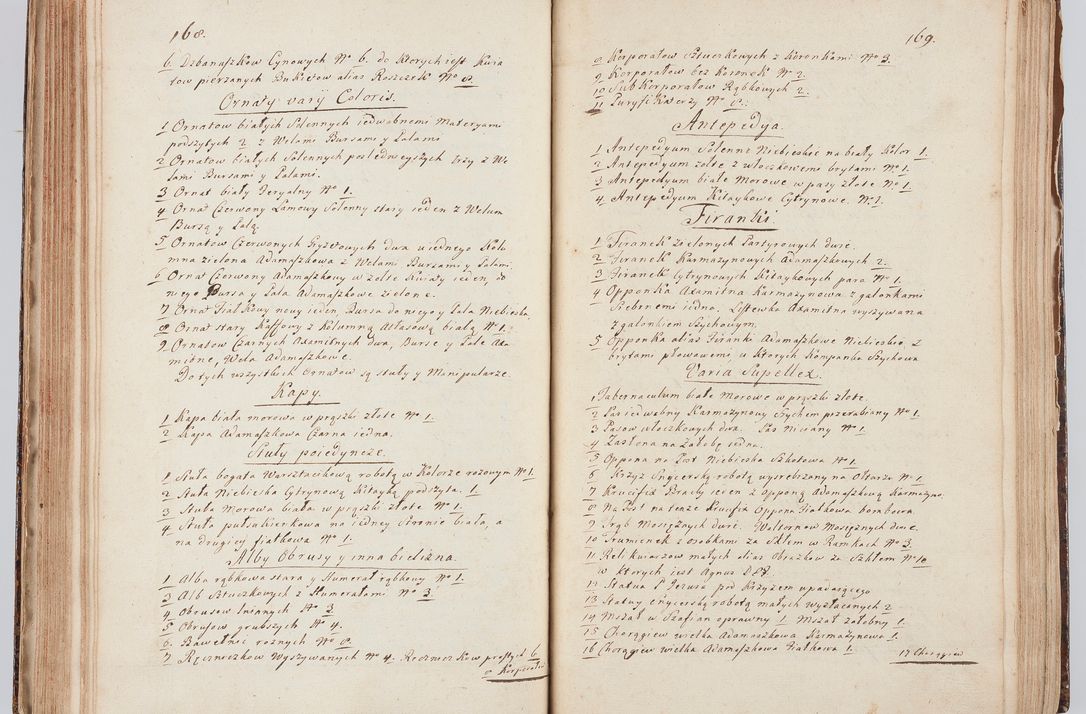 168.
6. Dzbanuszków Cynowych No 6. do których jest Kwia
tow pierzanych Bukietow alias Roszczek No 8.
Ornaty varij Coloris.
1 Ornatow białych Solennych iedwabnemi Materyami
podszytych 2. z Welami Bursami y Palami
2 Ornatow białych Solennych poslednieyszych trzy z We
lami Bursami y Palami.
3 Ornat biały Feryalny No 1.
4 Ornat Czerwony Lamowy Solenny stary ieden z Welum
Bursą y Palą.
5 Ornatow Czerwonych Gryzetowych dwa u iednego Kolu
mna zielona Adamaszkowa z Welami Bursami y Palami.
6 Ornat Czerwony Adamaszkowy w zołte Kwiaty ieden, do
niego Bursa y Pala Adamaszkowe zielone.
7 Ornat Fiałkowy nowy ieden, Bursa do niego y Pala Niebieska.
8 Ornat stary Kaffowy z Kolumną Atłasową białą No 1.
9 Ornatow Czarnych Axamitnych dwa, Burse y Pale Axa
mitne, Wela Adamaszkowe.
Do tych wszystkich Ornatow są stuły y Manipularze.
Kapy.
1 Kapa biała morowa w prązki złote No 1.
2 Kapa Adamaszkowa Czarna iedna.
Stuły poiedyncze.
1 Stuła bogata Warsztatkową robotą w Kolorze rożowym No 1.
2 Stuła Niebieska Cytrynową Kitayką podszyta. 1.
3 Stuła Morowa biała w prązki złote No 1.
4 Stuła pułsukierkowa na iedney stronie biała, a
na drugiey fiałkowa No 1.
Alby Obrusy y inna bielizna.
1 Alba rąbkowa stara y Humerał rąbkowy No 1.
3 Alb Sztuczkowych z Humerałami No 3.
4. Obrusow lnianych No 3
5 Obrusow grubszych No 4.
6. Bawełnic rożnych No 8.
7 Ręczniczkow Wyszywanych No 4. Ręczniczkow prostych 6.
8 Korporałow
169.
8 Korporałow Sztuczkowych z Koronkami No 3.
9 Korporałow bez Koronek No 2.
10 Subkorporałow Rąbkowych 2.
11 Puryfikaterzy No 8.
Antepedya.
1 Antepedyum Solenne Niebieskie na biały Kolor 1.
2 Antepedyum zołte z włoczkowemi brytami No 1.
3 Antepedyum białe Morowe w pasy złote No 1.
4. Antepedyum Kitaykowe Cytrynowe. No 1.
Firanki
1 Firanek zielonych Partyrowych dwie.
2 Firanek Karmazynowych Adamaszkowych 2.
3 Firanek Cytrynowych Kitaykowych para No 1.
4 Opponka Axamitna Karmazynowa z galonkami
Srebrnemi iedna, Listewka Axamitna wyszywana
z galonkiem Szychowym.
5 Opponka alias Firanki Adamaszkowe Niebieskie, z
brytami płowowemi, u ktorych Kompanka Szychowa
Varia Supellex.
1 Tabernaculum białe Morowe w prązki złote.
2 Pas iedwabny Karmazynowy Szychem przerabiany No 1.
3 Pasow włoczkowych dwa. Pas Niciany No 1.
4 Zasłona na żałobę iedna.
5 Oppona na Post Niebieska Szkotowa No 1.
6 Krzyż Snycerską robotą wysrebrzany na Ołtarz No 1.
7 Krucifix Bracki ieden z Opponą Adamaszkową Karmazyno.
8 Na Post na tenże Krucifix Oppona Fiałkowa bombowa.
9 Trąb Mosięznych dwie. Waltornow Mosięznych dwie.
10 Trumienek z osobkami za Szkłem w Ramkach No 3.
11 Relikwiarzow małych alias Obrazkow za Szkłem No 10
w ktorych iest Agnus DEI.
12 Statua P Jezusa pod Krzyżem upadaiącego
13 Statuy Snycerską robotą małych wyzłacanych 2
14 Mszał w Szafian oprawny 1. Mszał żałobny 1.
15 Chorągiew wielka Adamaszkowa Karmazynowa 1.
16 Chorągiew wielka Adamaszkowa Fiałkowa 1.
17 Chorągiew